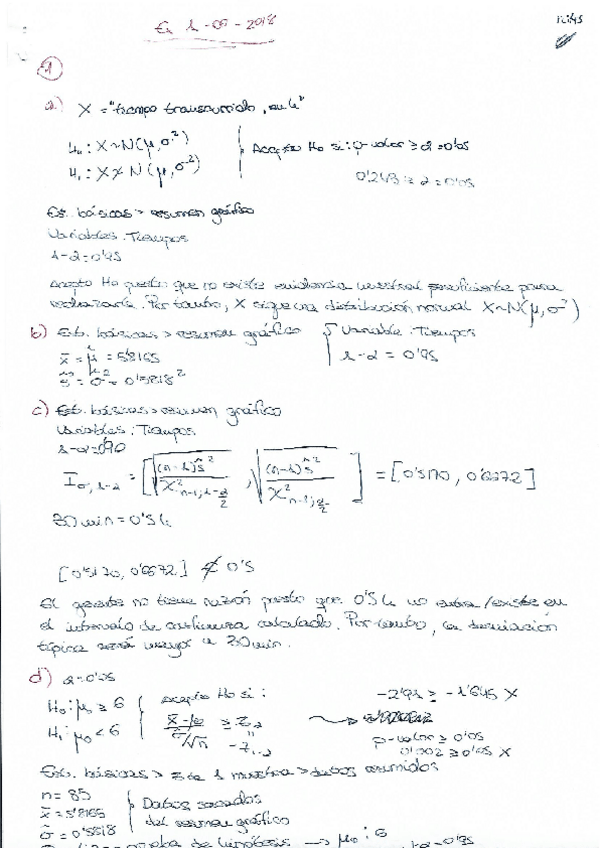 Ex 1-09-2018
1
a) X = "tiempo transcurrido, en h"
H₀: X ~ N(μ, σ²)
H₁: X ≁ N(μ, σ²)
Acepto H₀ si: p-valor ≥ α = 0'05
0'243 ≥ α = 0'05
Est. básicas > resumen gráfico
Variables: Tiempos
1-α = 0'95
Acepto H₀ puesto que no existe evidencia muestral suficiente para
rechazarla. Por tanto, X sigue una distribución normal X~N(μ, σ²)
b) Est. básicas > resumen gráfico
Variable: Tiempos
1-α = 0'95
x̄ = μ̂ = 5'8165
ŝ² = σ̂² = 0'5818²
c) Est. básicas > resumen gráfico
Variables: Tiempos
1-α = 0'90
I σ, 1-α = [ √((n-1)ŝ² / χ² n-1; 1-α/2) , √((n-1)ŝ² / χ² n-1; α/2) ] = [0'5170, 0'6672]
30 min = 0'5 h
[0'5170, 0'6672] ∉ 0'5
El gerente no tiene razón puesto que 0'5 h no entra/existe en
el intervalo de confianza calculado. Por tanto, la desviación
típica será mayor a 30 min.
d) α = 0'05
H₀: μ ≥ 6
H₁: μ₀ < 6
Acepto H₀ si:
(x̄ - μ₀) / (σ̂/√n) ≥ z α
"
-z 1-α
-2'91 ≥ -1'645 X
p-valor ≥ 0'05
0'002 ≥ 0'05 X
Est. básicas > Z de 1 muestra > datos resumidos
n = 85
x̄ = 5'8165
σ̂ = 0'5818
Datos sacados
del resumen gráfico
prueba de hipótesis → μ₀: 6